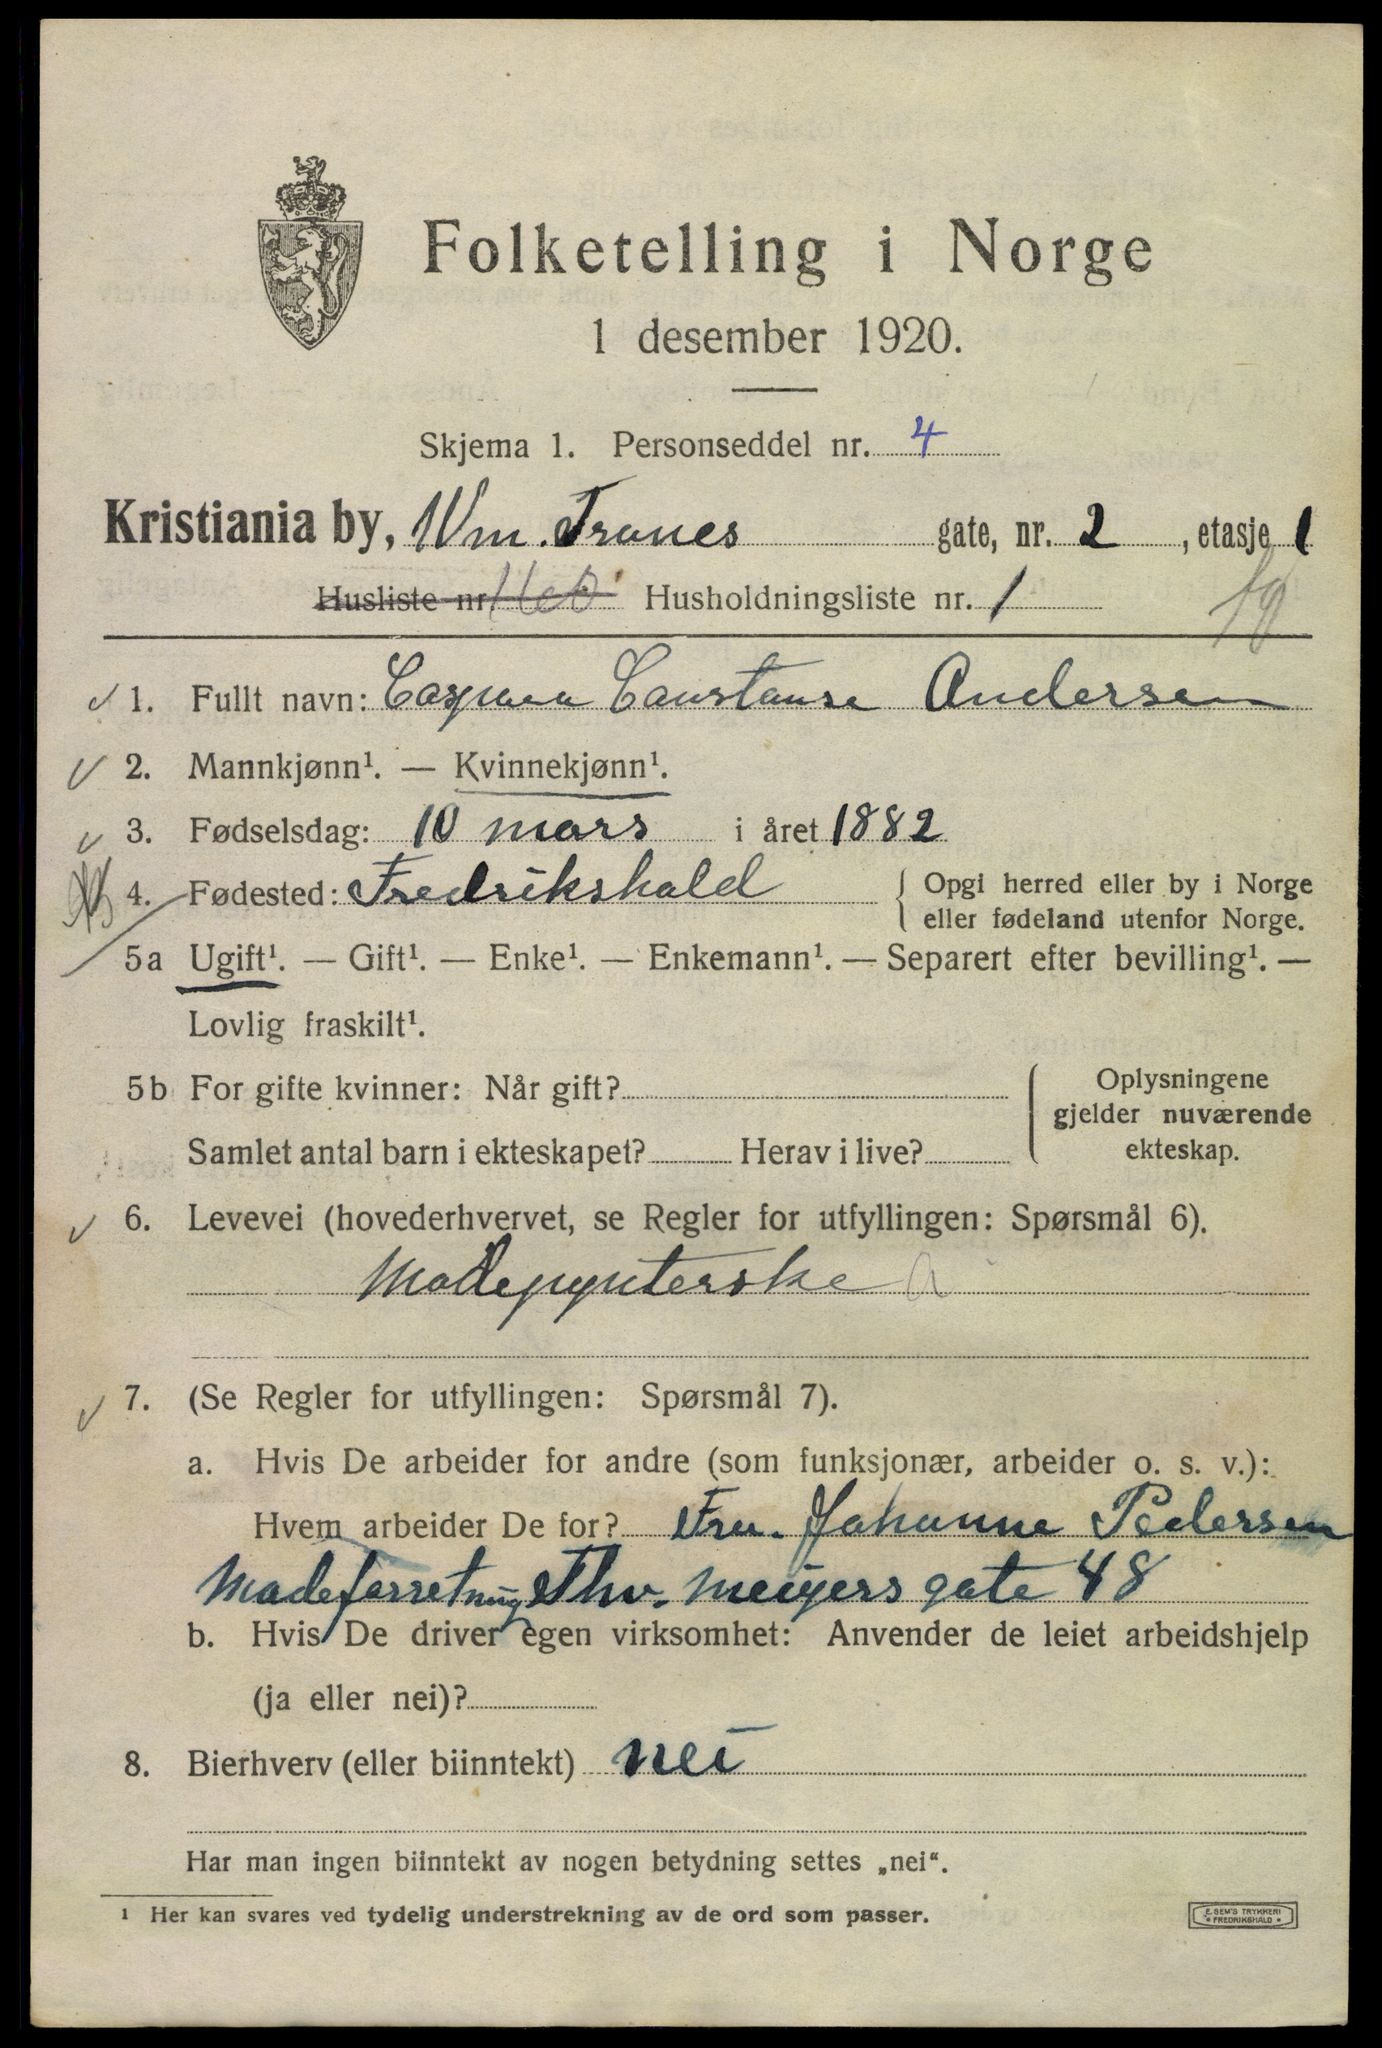 Folketelling i Norge
1 desember 1920.
Skjema 1. Personseddel nr. 4
Kristiania by, Wm. Tranes gate, nr. 2, etasje 1
Husliste nr. Husholdningsliste nr. 1
1. Fullt navn: Constanse Andersen
2. Mannkjønn¹. — Kvinnekjønn¹.
3. Fødselsdag: 10 mars i året 1882
4. Fødested: Fredrikshald { Opgi herred eller by i Norge
eller fødeland utenfor Norge.
5a Ugift¹. — Gift¹. — Enke¹. — Enkemann¹. — Separert efter bevilling¹. —
Lovlig fraskilt¹.
5b For gifte kvinner: Når gift? { Oplysningene
gjelder nuværende
Samlet antal barn i ekteskapet? Herav i live? ekteskap.
6. Levevei (hovederhvervet, se Regler for utfyllingen: Spørsmål 6).
Modepynterske
7. (Se Regler for utfyllingen: Spørsmål 7).
a. Hvis De arbeider for andre (som funksjonær, arbeider o. s. v.):
Hvem arbeider De for? Fru. Johanne Pedersen
Modeforretning Thv. Meyers gate 48
b. Hvis De driver egen virksomhet: Anvender de leiet arbeidshjelp
(ja eller nei)?
8. Bierhverv (eller biinntekt) nei
Har man ingen biinntekt av nogen betydning settes „nei“.
¹ Her kan svares ved tydelig understrekning av de ord som passer.
E. SEM'S TRYKKERI
* FREDRIKSHALD *